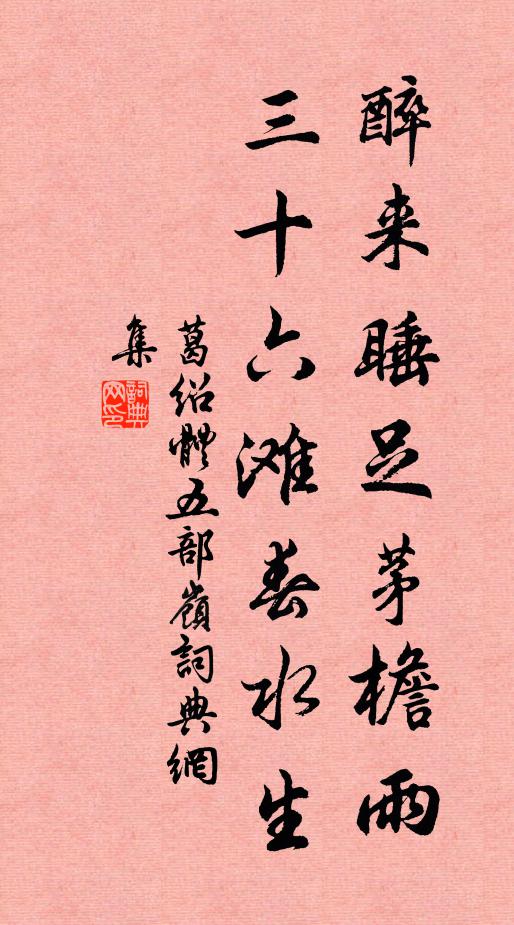 醉来睡足茅檐雨
三十六滩春水生
葛绍體五部嶺詞典網
集
詞典网印